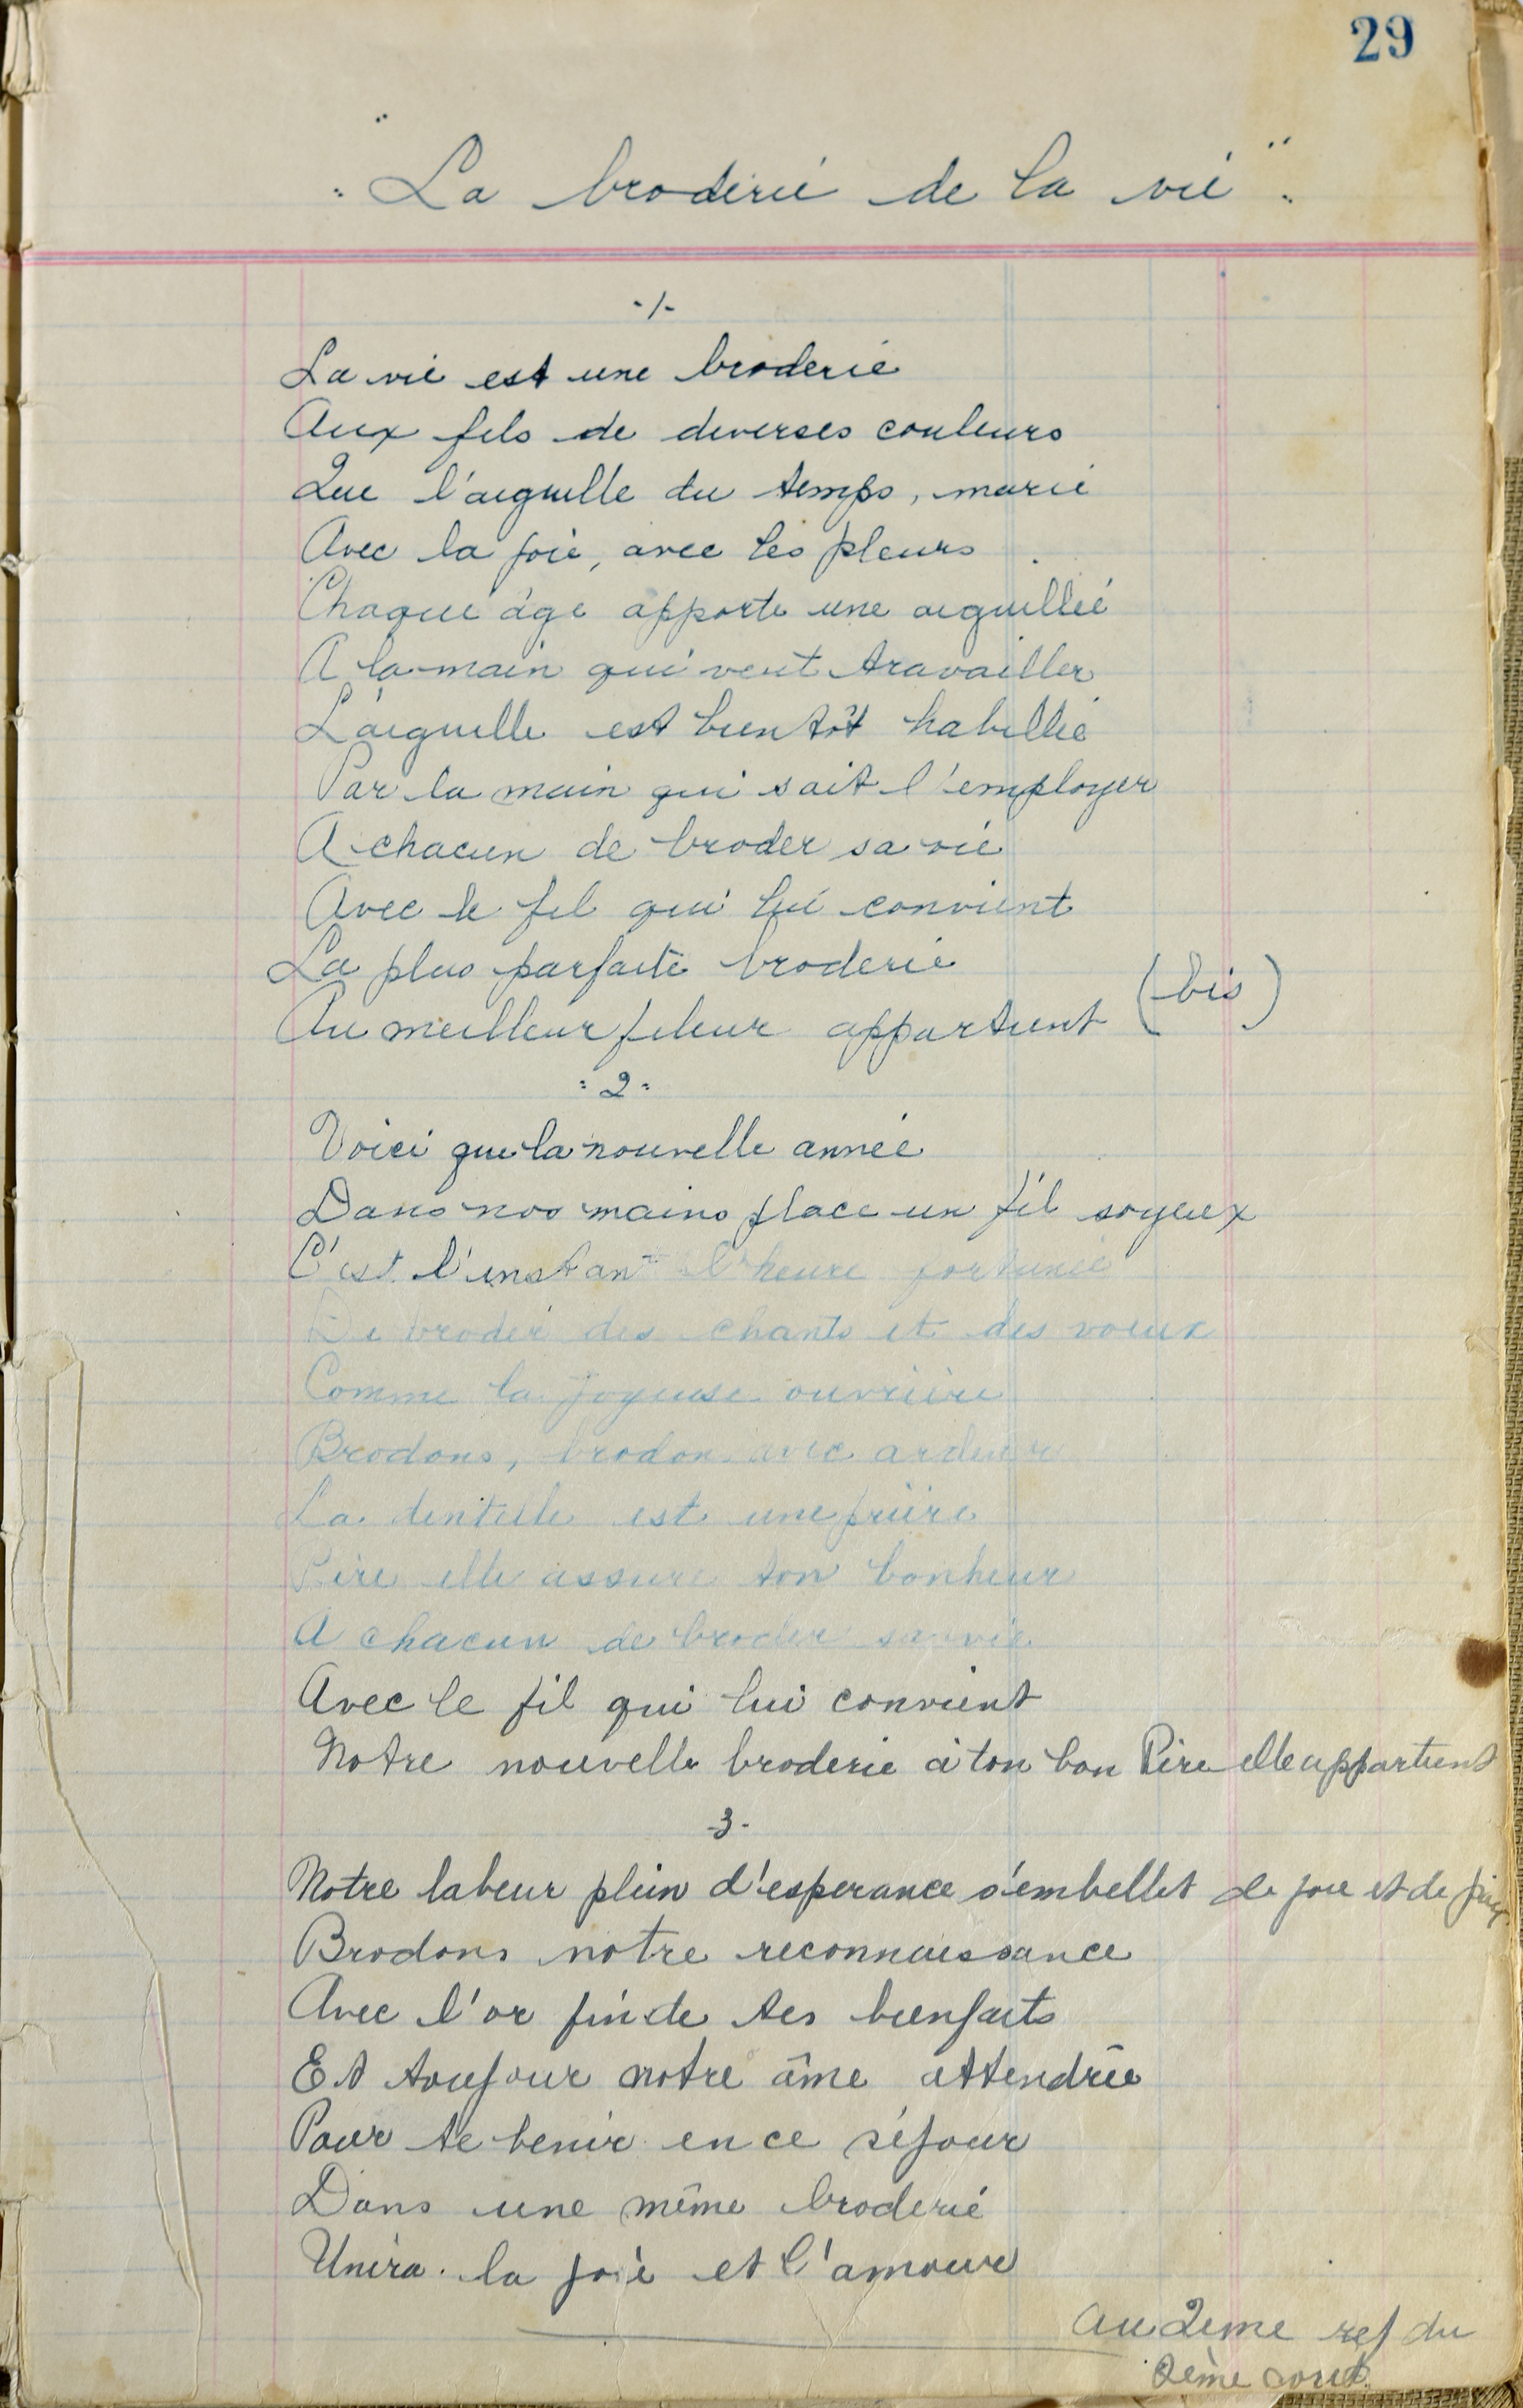 29
"La broderie de la vie".
-1-
La vie est une broderie
Aux fils de diverses couleurs
Que l'aiguille du temps, marie
Avec la joie, avec les pleurs.
Chaque âge apporte une aiguillée
A la main qui veut travailler
L'aiguille est bientôt habillée
Par la main qui sait l'employer
A chacun de broder sa vie
Avec le fil qui lui convient
La plus parfaite broderie
Au meilleur fileur appartient (bis)
:2:
Voici que la nouvelle année
Dans nos mains place un fil soyeux
C'est l'instant l'heure fortunée
De broder des chants et des voeux
Comme la joyeuse ouvrière
Brodons, brodon avec ardeur
La dentelle est une prière
Père elle assure ton bonheur
A chacun de broder sa vie
Avec le fil qui lui convient
Notre nouvelle broderie à ton bon Père elle appartient
-3-
Notre labeur plein d'esperance s'embellit de joie et de
Brodons notre reconnaissance
Avec l'or fin de tes bienfaits
Et toujour notre âme attendrie
Pour te benir en ce séjour
Dans une même broderie
Unira la joie et l'amour
Au 2eme ref du
2ème